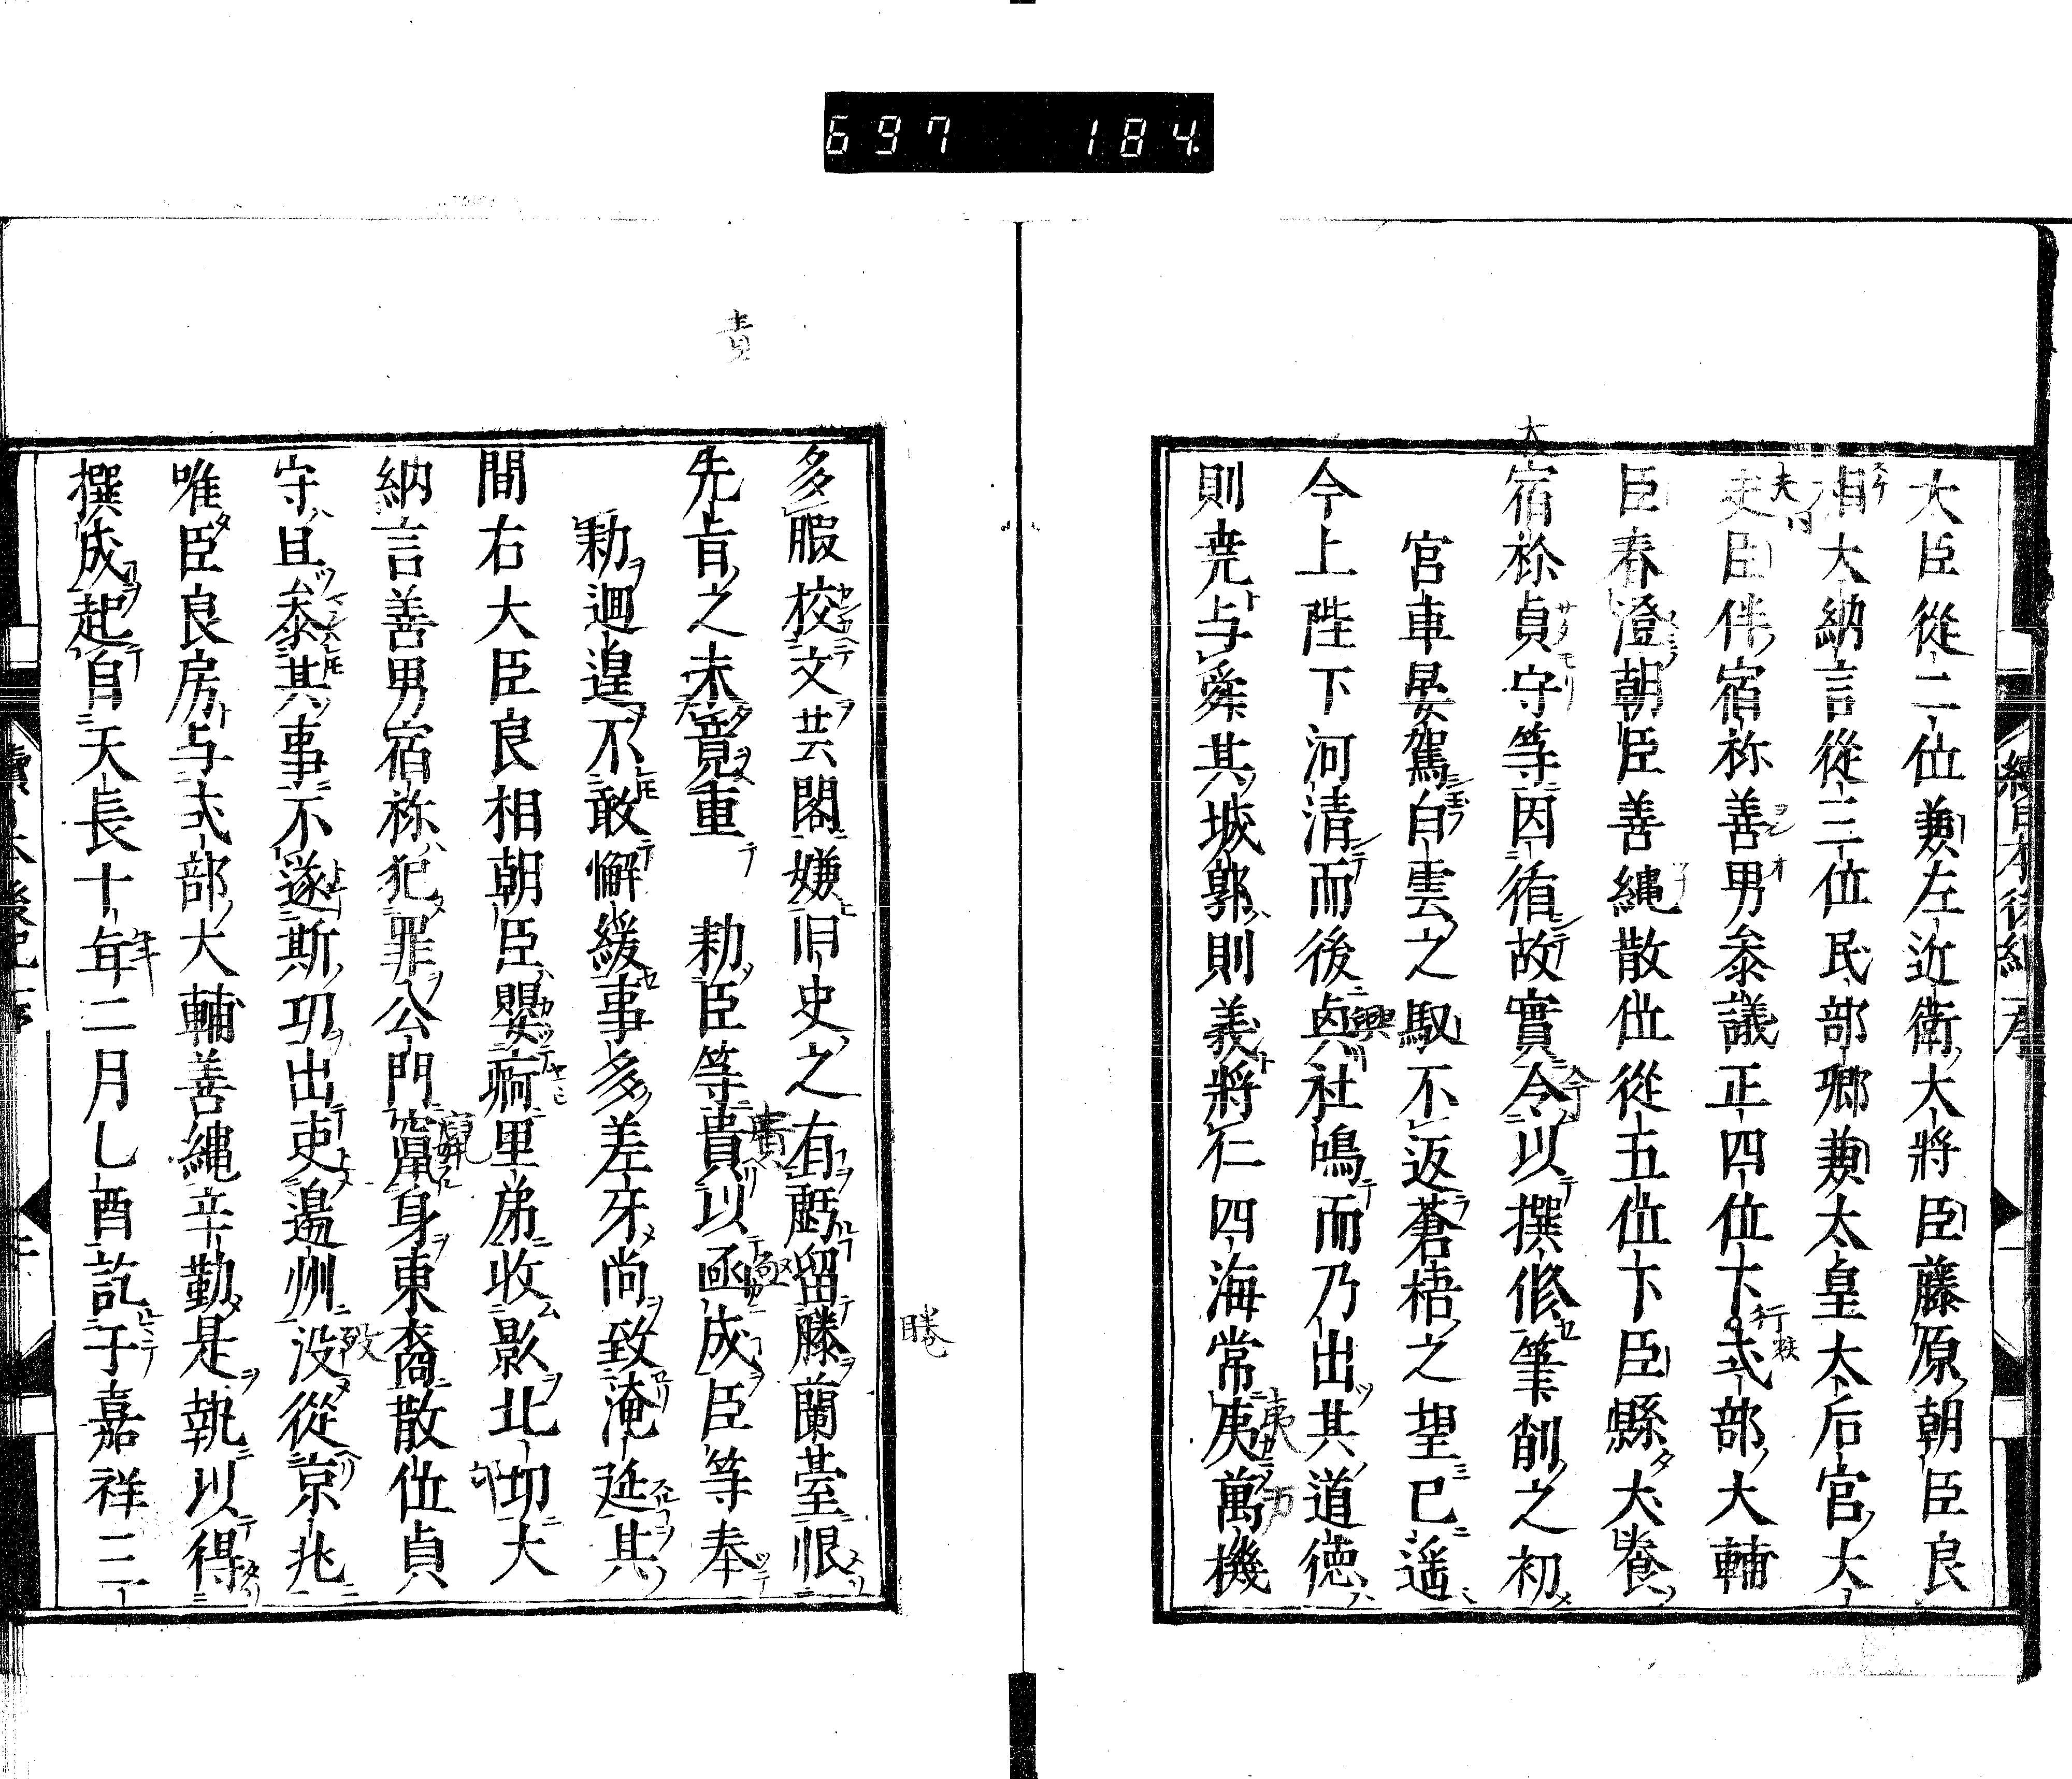 697 184
大臣從二位兼左近衛大將臣藤原朝臣良
相大納言從三位民部卿兼太皇太后宮大
夫臣伴宿祢善男参議正四位下式部大輔
臣春澄朝臣善縄散位從五位下臣縣犬養
大
宿祢貞守等因循故實令以撰修筆削之初
宮車晏駕白雲之馭不返蒼梧之望已遥
今上陛下河清而後臨社鳴而乃出其道徳
則尭与舜其城郭則義將仁四海常夷萬機
多暇挍文芸閣嫌旧史之有虧留睠蘭臺恨
先旨之未竟重 勅臣等責以亟成臣等奉
勅遑遑不敢懈緩事多差牙尚致淹延其
間右大臣良相朝臣嬰痾里弟收影北邙大
納言善男宿祢犯罪公門竄身東裔散位貞
守且参其事不遂斯功出吏邉州没從京兆
唯臣良房与式部大輔善縄辛勤是執以得
撰成起自天長十年二月乙酉訖于嘉祥三
責
睠